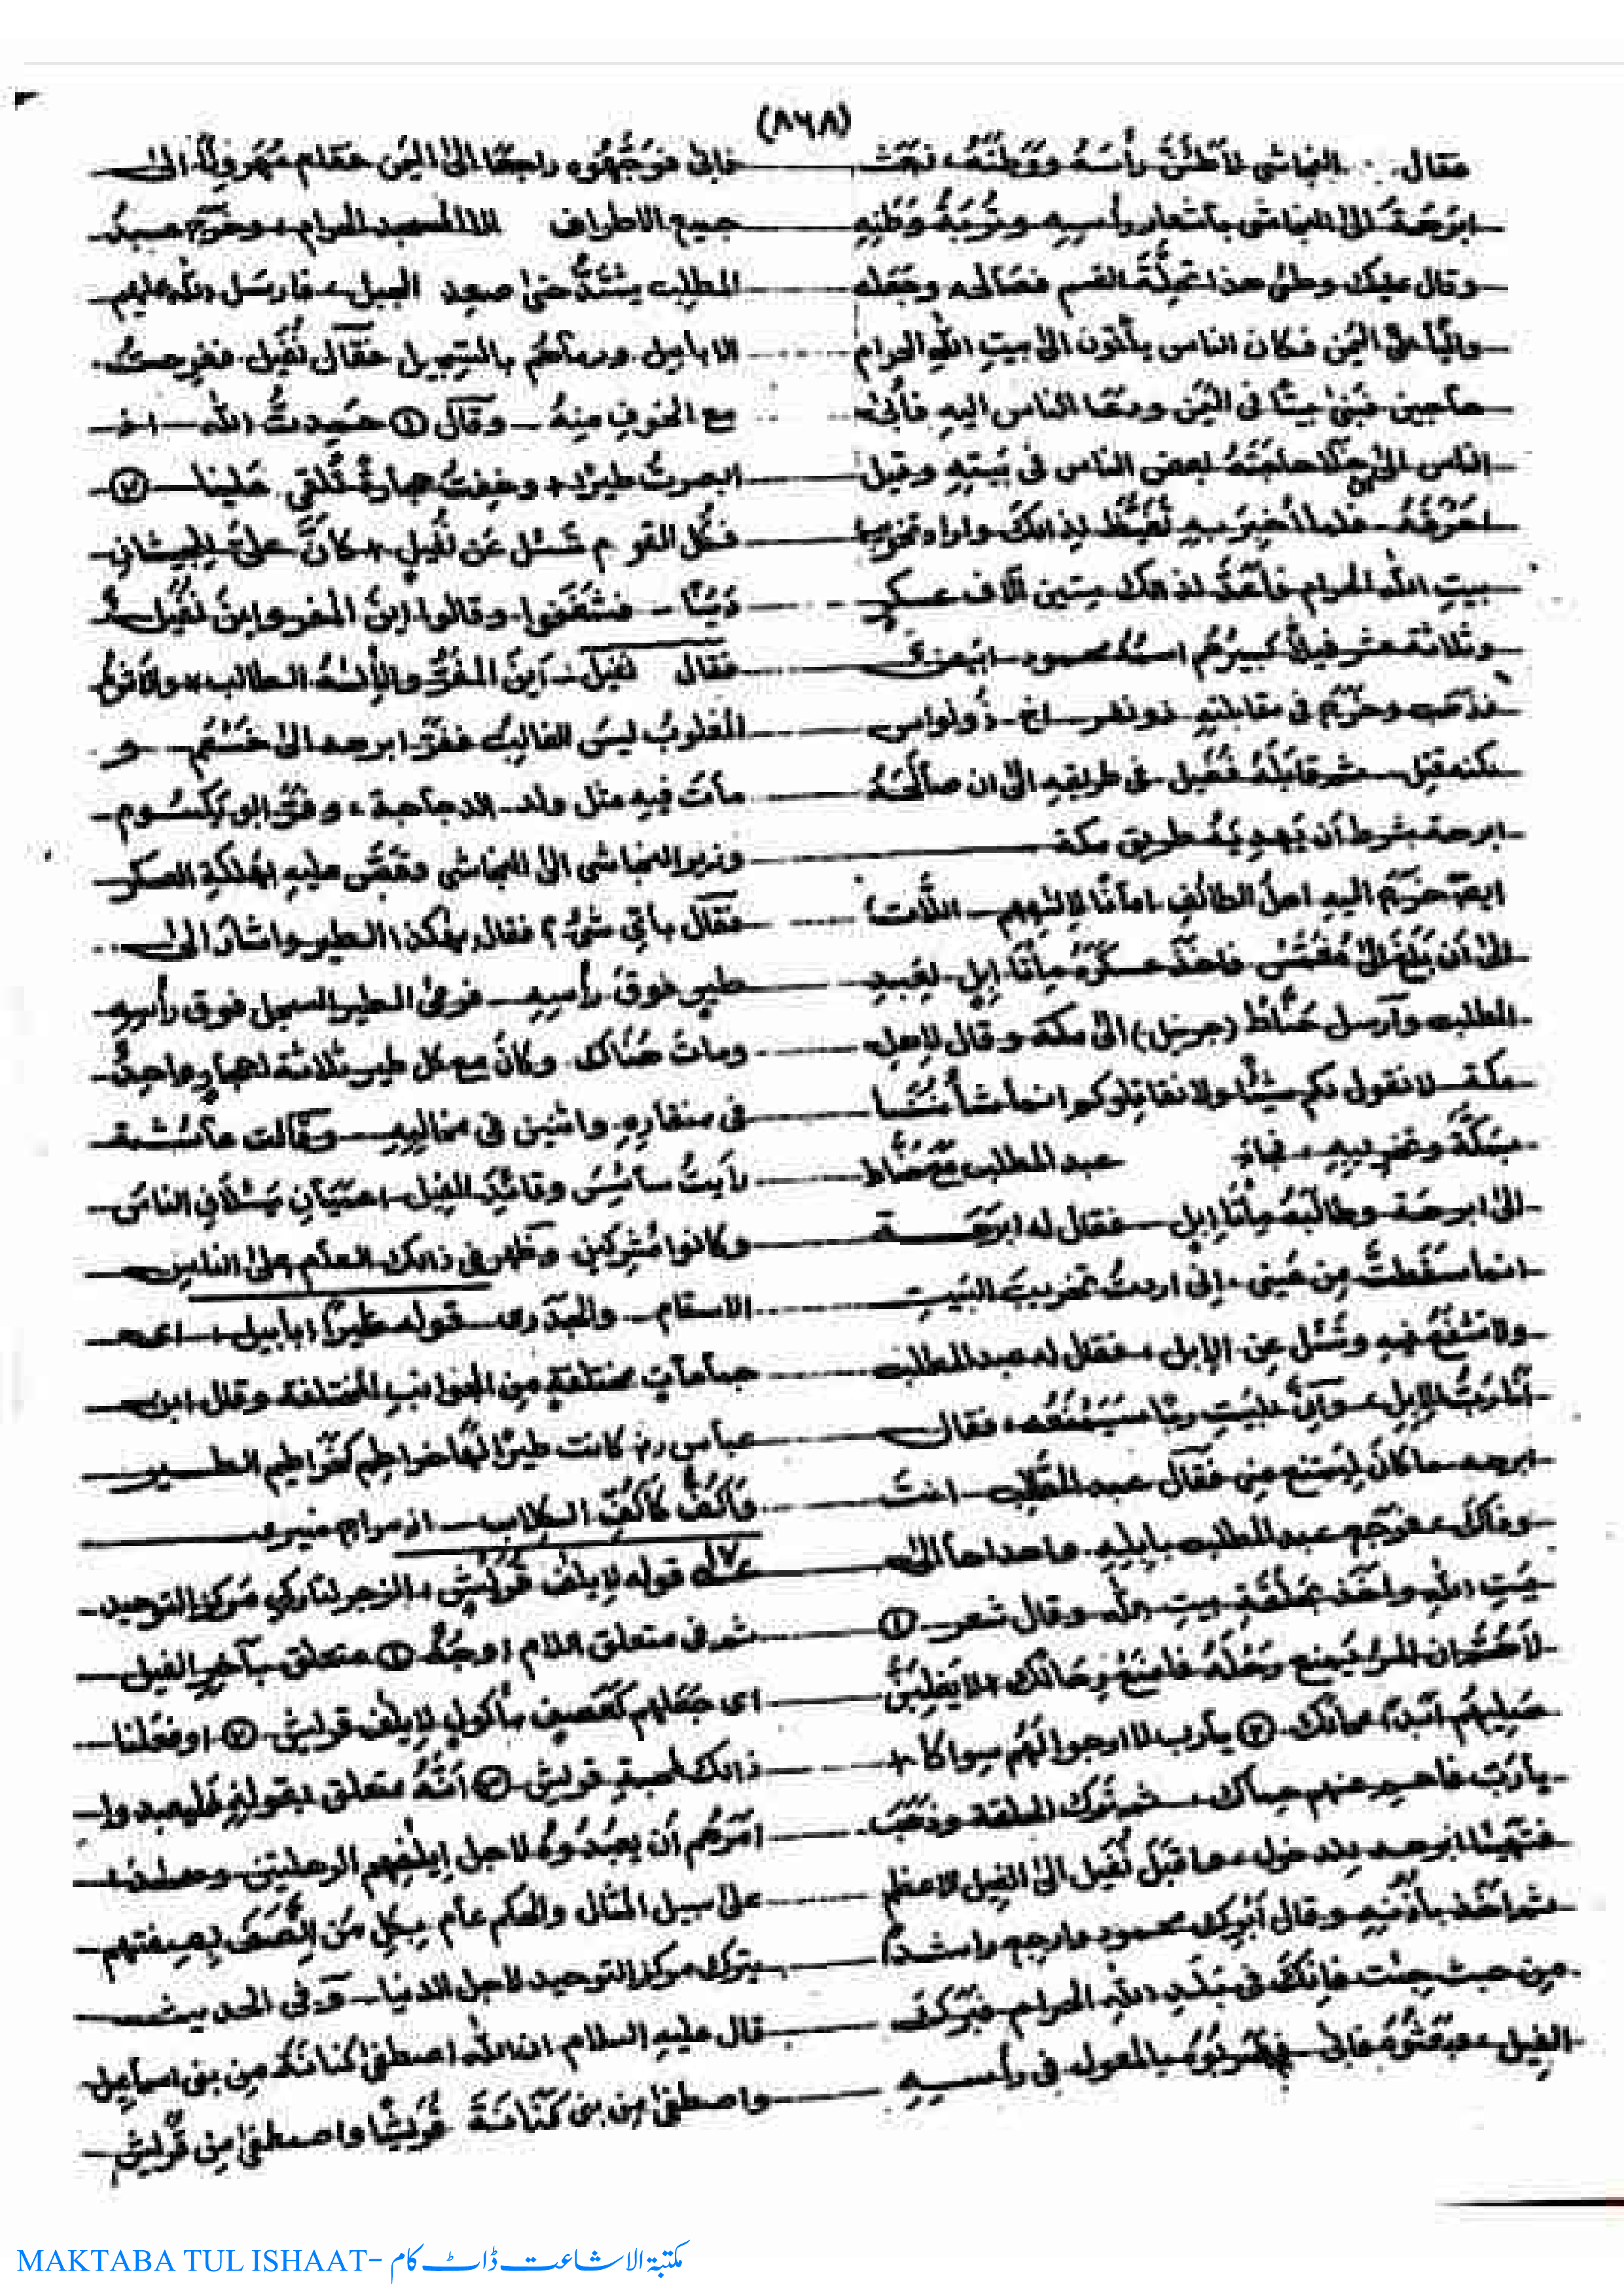 (٨٦٨)
فقال النجاشی لاَطَئَنَّ رأسَهٗ ووَطَنَهٗ، فبَعَثَ
ابرَهَةُ الیٰ النجاشی بأشعارِ رأسِہِ وتُربَةُ وَطَنِہِ
وقال علیک وطیٔ هذا تَحِلَّةَ القسم فصَالَحَه وجَعَله
والیًا علیٰ الیَمَن فکان الناس یأتون الیٰ بیتِ اللّٰہِ الحرام
حاجین فبَنیٰ بیتًا فی الیَمَن ودعَا الناس الیہِ فأبیٰ
الناس الیٰ قضاحاجَتَهٗ بعض الناس فی بَیتِہِ وقیل
احرَقَهٗ۔ فلما اُخبِرَ بہِ تَغَیَّظَ لِذالک واراد تخریب
بیتِ اللّٰہ الحرام فاَعَدَّ لذالک سِتین آلاف عسکر
وثلاثة عشر فیلاً کبیرُهُم اسمُهٗ محمود۔
فذهَبَ وهُزِمَ فی مقابلتِہِ ذو نفر۔ اخ۔ ذُولواس
لکنہ قتِل۔ ثم قابَلَهٗ نُفَیل۔ فی طریقِہِ الیٰ ان صالَحَهٗ
ابرهة بشرط اَن یَهدِیَهٗ طریق مکة
ایضًا خرَجَ الیہ اهلُ الطائف امانًا لِاِلٰهِهِم۔ اللَّات
الیٰ اَن بَلَغَ الیٰ مُغَمَّس فاخَذَ عسکرُهٗ مِأتَا اِبِل۔ لِعَبدِ
المطلب وأرسل حنَّاطَ (رجل) الیٰ مکة وقال لاِهلِ
مکة۔ لا نقول لکم شیئًا ولا نقاتلوکم انما شأنُنَا
بمَکَّة وتخریبِہِ، فجاءَ عبد المطلب مَعَ حنَّاط
الیٰ ابرهَة وطالَبَهٗ مِأتَا اِبِل۔ فقال له ابرَهَة
انما سَقَطتَ مِن عَینی۔ اِنّی اردتُ تخریبَ البَیتِ
ولا تَشفَعُ فیہِ وتَسئل عَنِ الاِبل، فقال له عبد المطلب
أنَا رَبُّ الاِبِل، وَاِنَّ للبَیتِ ربًّا سَیَمنَعُه، فقال
ابرهه ماکانَ لِیَمتَنِعَ مِنّی فقَالَ عبد المطَّلِب۔ انتَ
وذالک، فرَجَع عبد المطلب بابِلِہِ۔ الیٰ
بَیتِ اللّٰہِ واخَذ بحَلَقَةِ بیتِ اللّٰہ وقال شعر۔ ①
لاَهُمَّ ان المرءَ یَمنع رَحلَهٗ فامنَعْ رِحَالَک، لا یَغلِبَنَّ
صَلِیبُهُم اَبَدًا مِحَالَک۔ ② یارب لا ارجوا لَهُم سِواکا +
یارَبّ فامنع عنهم حماک، ثم ترک الحلقة وذهَبَ
فتهَیَّأ ابرهه لِدخول، فاقبَلَ نُفَیل الیٰ الفِیل الاعظم
ثم اخَذ باُذُنِہِ وقال اُبرُک محمود وارجِع راشدًا
مِن حیث جِئت فاِنکَ فی بَلَدِ اللّٰہِ الحرام۔ فبَرَک
الفِیل، فبَعَثُوهُ فابیٰ۔ فضَرَبُوهُ بالمعول فی رأسِہِ
فابیٰ فوَجَّهُوه راجِعًا الیٰ الیَمَن فقام مُهَروِلًا الیٰ
جمیع الاطراف الا المسجد الحرام، وخرَجَ عبدُ
المطلب یشتَدُّ حتیٰ صعِد الجبل، فارسَل اللّٰہ علیهم
الابابیل ورماهُم بالسِّجِیل فقَالَ نُفَیل۔ ففرِحتُ
مع الخوفِ مِنہُ۔ وقَالَ ① حَمِدتُ اللّٰہ۔ اذ
ابصرتُ طَیرًا + وخِفتُ حِجارةً تُلقیٰ عَلَینا۔ ②
فکُل القوم تَسئل عَن نُفَیلٍ + کانَّ علیَّ لِلحُبشان
دَینًا۔ فتَفَرَّوا وقالوا اَینَ المفر واینَ نُفَیل؟
فقال نُفَیل۔ اَینَ المفَرُّ والاِلٰهُ الطالب، والاشرَمُ
المغلوبُ لیسَ الغالبُ ففَرّ ابرهه الیٰ خَثعَم۔ و
ماتَ فیہِ مثل ولد۔ الدجاجة، وفَرَّ ابو یَکسُوم
وزیر النجاشی الیٰ النجاشی وقَصَّ علیہِ لِهَلکَةِ العسکر
فقَالَ بأیِّ شئٍ؟ فقال بهٰکذا الطیر واشارَ الیٰ
طیرٍ فوقَ رأسِہِ۔ فرمیٰ الطیر السجیل فوق رأسِہِ
وماتَ هُنَاکَ وکانَ مع کل طیر ثلاثة احجارٍ واحِدٌ
فی مِنقارِہِ واثنین فی مخالِبِہِ۔ وقَالَت عائشة
رایتُ سائسَ وقائدَ الفِیل۔ اعمَیَانِ یَسئَلاَنِ الناسَ
وکانوا مُشرکین وظهر فی ذالک العام علیٰ الناس
الاسقام۔ والجدَری۔ قوله طَیرًا ابابیل، ای
جماعاتٍ مختلفةٍ مِن الجوانب المختلفة وقال ابن
عباس رض کانت طیرًا لَهَا خراطیم کخَرَاطیم الطیر
وَاَکُفٌّ کَاَکُفِّ الکِلاب۔ از سراج منیر
١٧ قوله لِاِیلٰفِ قُرَیش، الزجر لتارکی مَرکز التوحید
ثم فی متعلق اللام اوجُهٌ ① متعلق بآخر الفیل
ای جَعَلهم کعَصفٍ مأکول لِاِیلٰف قریش۔ ② اوفعَلنا
ذالک قریش۔ ③ اَنَّهٗ متعلق بقولہٖ فلیعبدوا
امَرَهُم اَن یعبُدُوهُ لاجل اِیلٰفِهِم الرحلتین
علیٰ سبیل المثال والحکم عام بِکُلِ مَن اتَّصَفَ بِصِفتهم
بترک مرکز التوحید لاجل الدنیا۔ وَفی الحدیث
قال علیہِ السلام ان اللّٰہ اصطفیٰ کنانَةَ مِن بنی اسماعیل
واصطفیٰ مِن بنی کَنَانَةَ قُرَیشًا واصطفیٰ مِن قُریش
MAKTABA TUL ISHAAT- مکتبۃ الاشاعت ڈاٹ کام